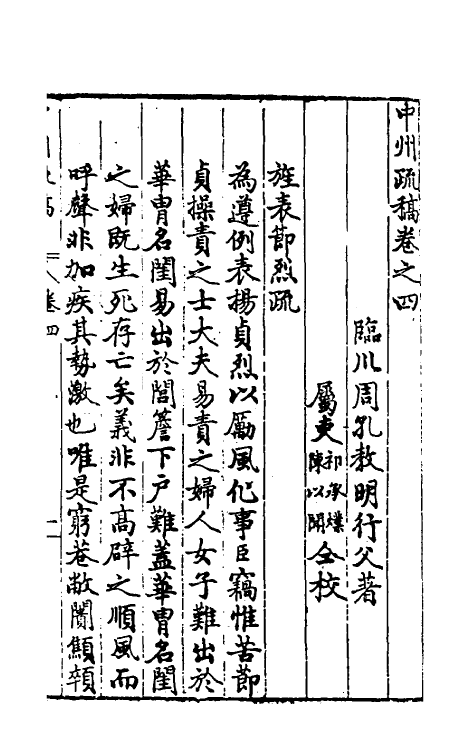 中州疏稿卷之四
臨川周孔教明行父著
屬吏祁承㸁陳以聞仝校
旌表節烈疏
為遵例表揚貞烈以勵風化事臣竊惟苦節
貞操責之士大夫易責之婦人女子難出於
華胄名閨易出於閭簷下戶難蓋華胄名閨
之婦旣生死存亡矣義非不高辟之順風而
呼聲非加疾其勢激也唯是窮巷敝闤顦顇
卷四